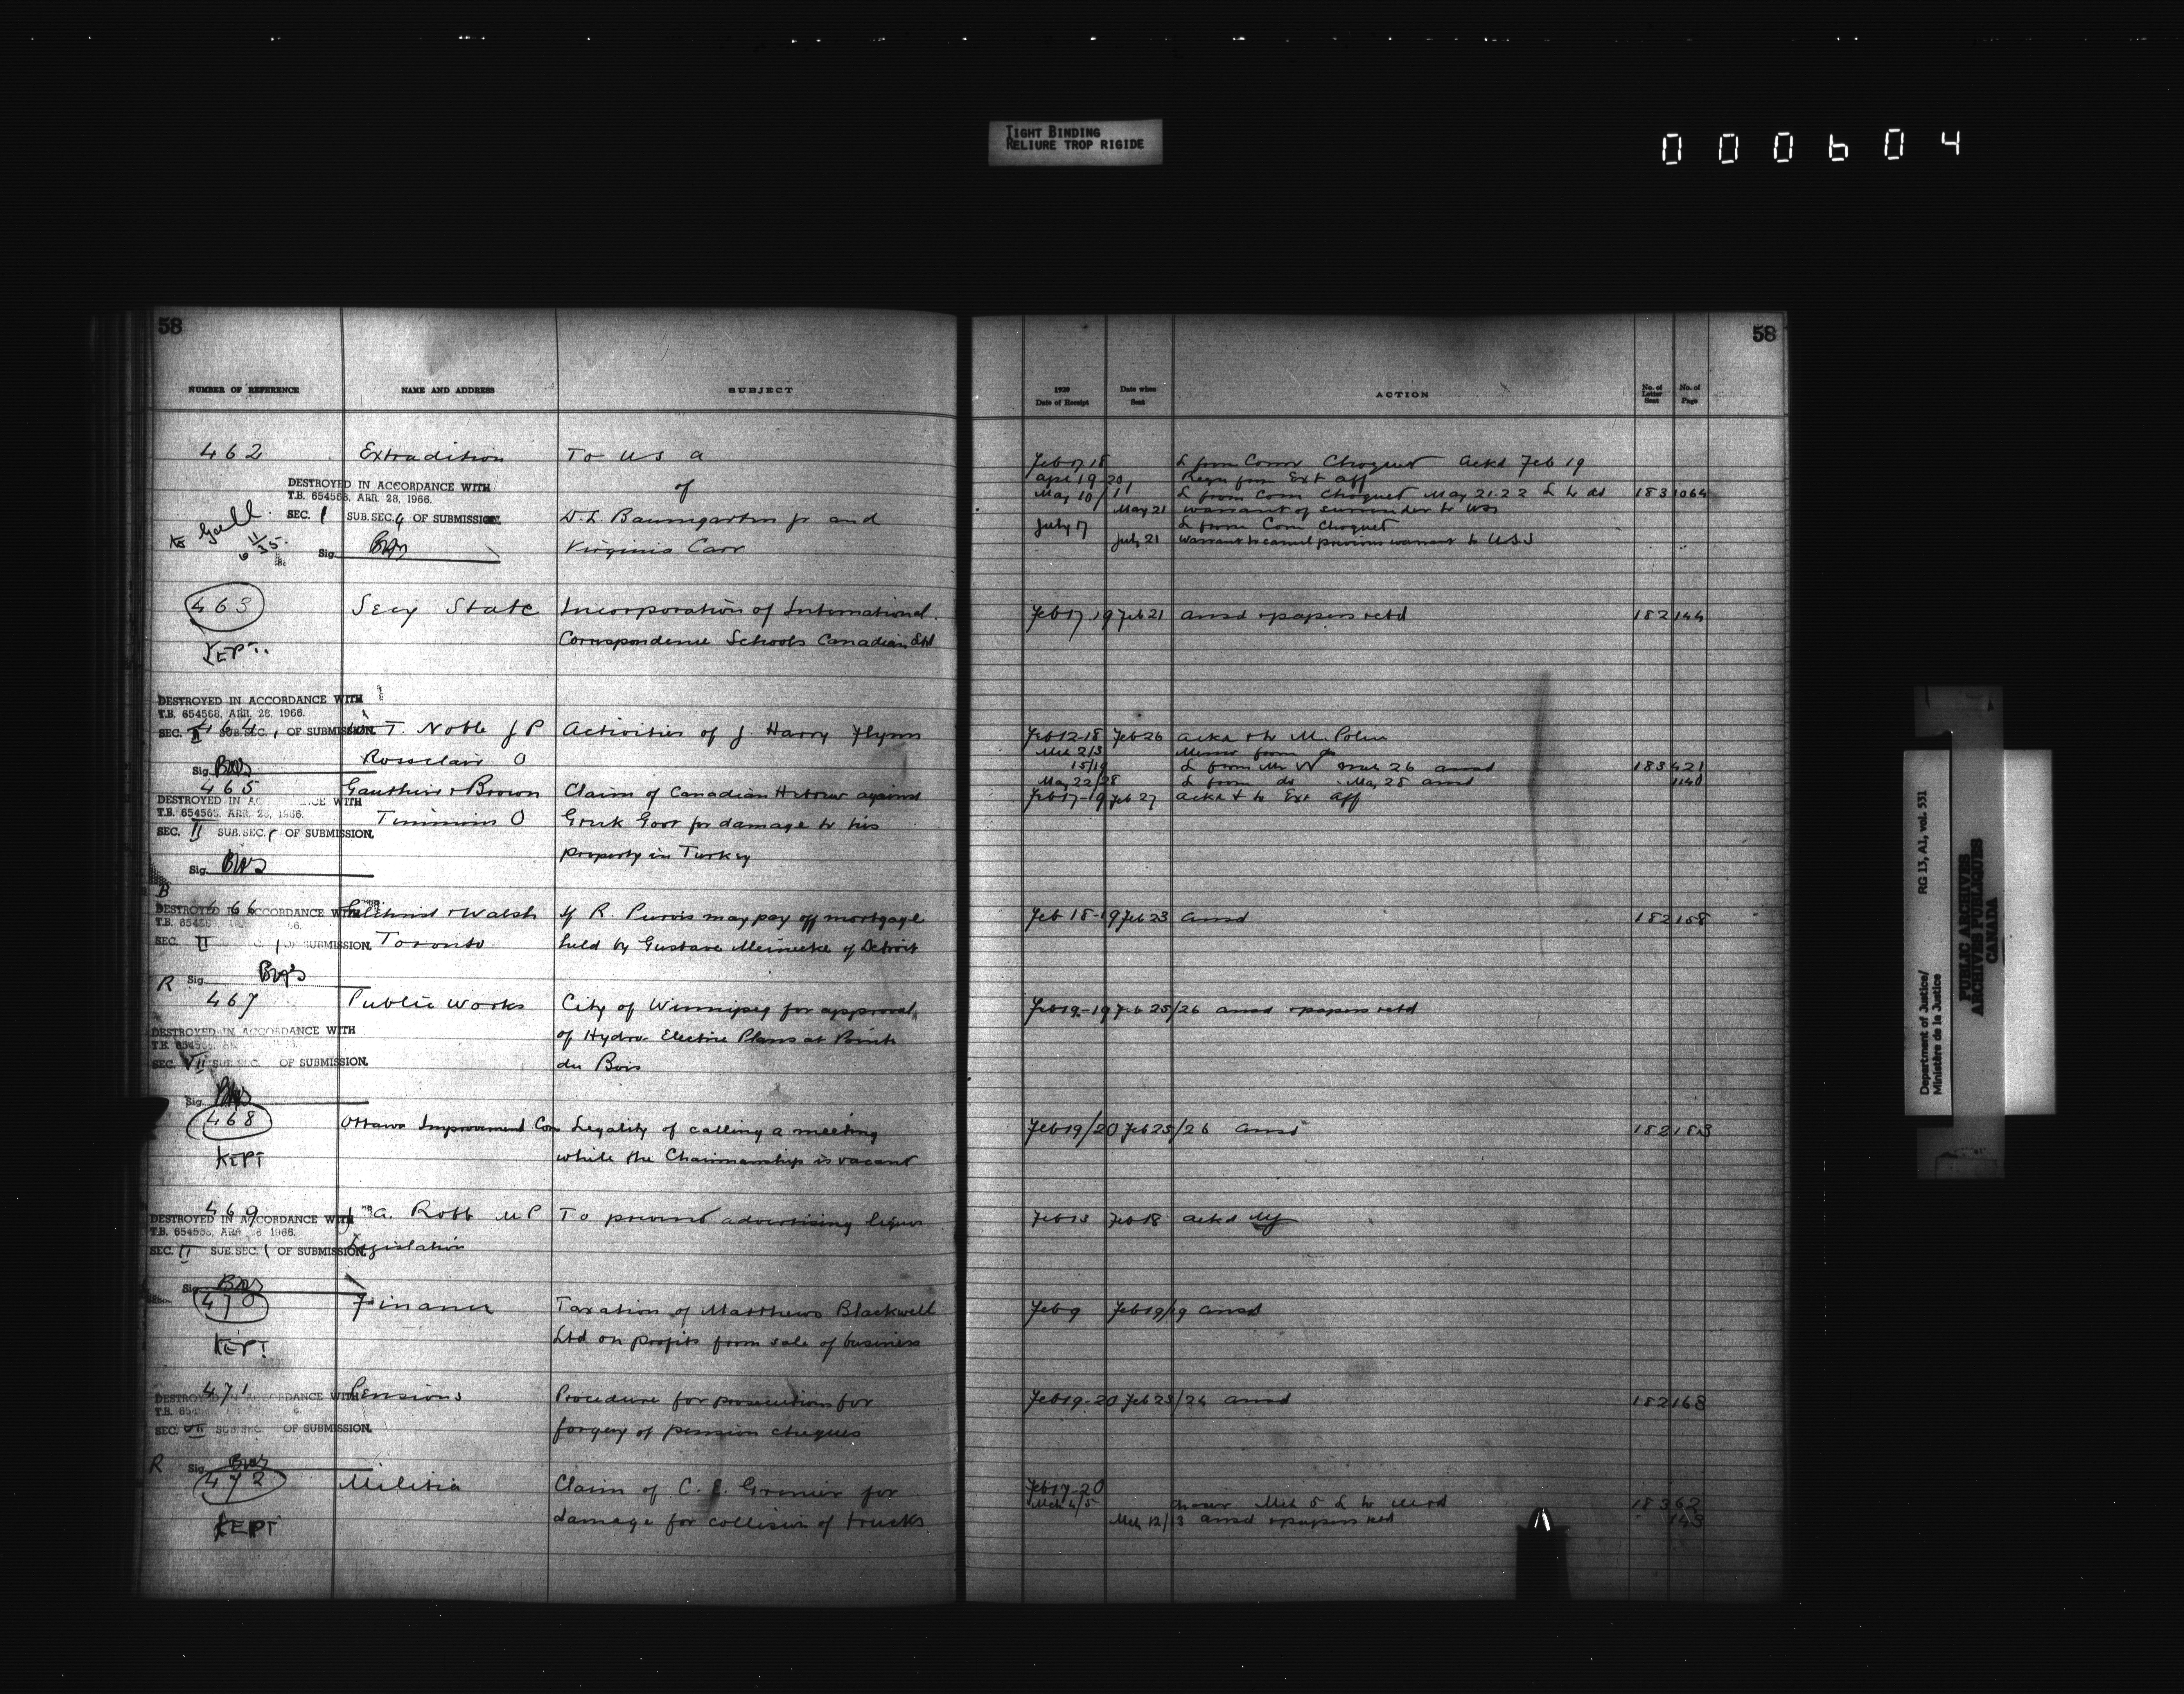 TIGHT BINDING
RELIURE TROP RIGIDE
000604
58
NUMBER OF REFERENCE NAME AND ADDRESS SUBJECT
462 Extradition To U S a
DESTROYED IN ACCORDANCE WITH
T.B. 654568, APR. 28, 1966. of
SEC. 1 SUB. SEC. 4 OF SUBMISSION. D. L. Baumgarten jr and
Sig. Virginia Carr
463 Secy State Incorporation of International
KEPT. Correspondence Schools Canadian Ltd
DESTROYED IN ACCORDANCE WITH
T.B. 654568, APR. 28, 1966.
464 T. Noble J P Activities of J. Harry Flynn
SEC. II SUB. SEC. 1 OF SUBMISSION.
Rossclair O
Sig.
465 Gauthier & Brown Claim of Canadian Hebrew against
DESTROYED IN ACCORDANCE WITH
T.B. 654568, APR. 28, 1966. Timmins O Greek Govt for damage to his
SEC. II SUB. SEC. 1 OF SUBMISSION.
property in Turkey
Sig.
B
466 & Walsh If R. Purvis may pay off mortgage
DESTROYED IN ACCORDANCE WITH
SEC. II OF SUBMISSION. Toronto held by Gustave Meinecke of Detroit
R Sig.
467 Public Works City of Winnipeg for approval
DESTROYED IN ACCORDANCE WITH of Hydro Electric Plans at Pointe
SEC. VII SUB. SEC. OF SUBMISSION. du Bois
Sig.
468 Ottawa Improvement Com Legality of calling a meeting
KEPT while the Chairmanship is vacant
469 J A. Robb M P To prevent advertising liquor
DESTROYED IN ACCORDANCE WITH
T.B. 654568, APR. 28 1966.
SEC. II SUB. SEC. 1 OF SUBMISSION. Legislation
Sig.
470 Finance Taxation of Matthews Blackwell
KEPT Ltd on profits from sale of business
471 Pensions Procedure for prosecutions for
DESTROYED IN ACCORDANCE WITH
SEC. VII SUB. SEC. OF SUBMISSION. forgery of pension cheques
R Sig.
472 Militia Claim of C. E. Grenier for
KEPT damage for collision of trucks
58
1920 Date of Receipt Date when Sent ACTION No. of Letter Sent No. of Page
Feb 17 18 L from Comr Choquet Ackd Feb 19
Apr 19 20 Reqn from Ext aff
May 10/11 L from Com Choquet May 21-22 L to do 183 1064
May 21 warrant of surrender to
July 17 L from Com Choquet
July 21 warrant to cancel previous warrant to
Feb 17.19 Feb 21 ansd & papers retd 182 144
Feb 12-18 Feb 26 ackd & to M. Police
Mch 2/3 Memo from do
15/19 L from Mr N Mch 26 ansd 183 421
May 22/28 L from do May 28 ansd 1140
Feb 17-19 Feb 27 ackd & to Ext aff
Feb 18-19 Feb 23 ansd 182 158
Feb 19-19 Feb 25/26 ansd & papers retd
Feb 19/20 Feb 25/26 ansd 182 183
Feb 13 Feb 18 ackd
Feb 9 Feb 19/19 ansd
Feb 19-20 Feb 23/24 ansd 182 168
Feb 17-20
Mch 4/5 Mch 5 L to 183 62
Mch 12/13 ansd & papers retd 143
Department of Justice/
Ministère de la Justice
RG 13, A1, vol. 531
PUBLIC ARCHIVES
ARCHIVES PUBLIQUES
CANADA